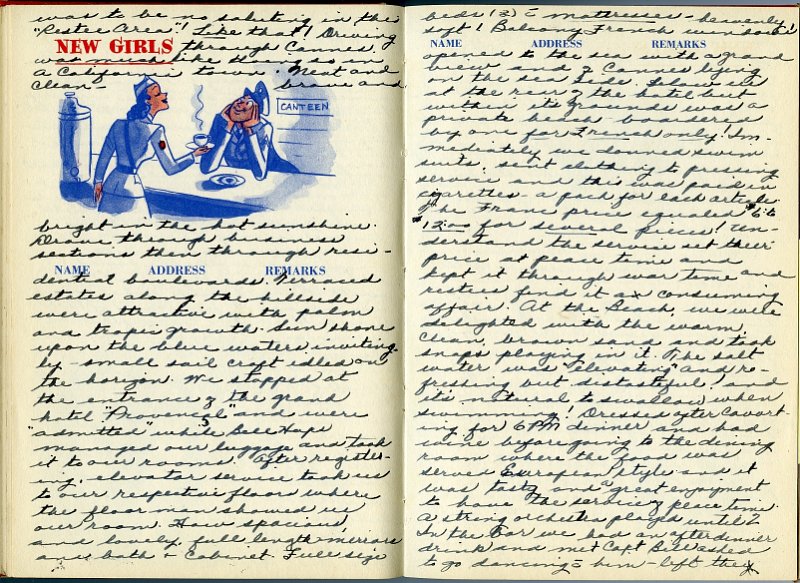 was to be no saluting in this
"Restee Area"! Like that! Driving
NEW GIRLS
through Cannes,
was much like being so in
a California town. Neat and
clean - brave and
CANTEEN
bright in the hot sunshine.
Drove through business
sections then through resi-
NAME ADDRESS REMARKS
dential boulevards. Terraced
estates along the hillside
were attractive with palm
and tropic growth. Sun shone
upon the blue waters inviting-
ly - small sail craft idled on
the horizon. We stopped at
the entrance of the grand
hotel "Provencal" and were
"admitted" while Bell Hops
managed our luggage and took
it to our rooms. After register-
ing, elevator service took us
to our respective floor where
the floor man showed us
our room. How spacious,
and lovely, full length mirrors
and bath & cabinet. Full size
beds (3) c̄ mattresses - heavenly
soft! Balcony French windows
NAME ADDRESS REMARKS
opened to the sea with a grand
view and of Cannes lying
on the sea side. Below us
at the rear of the hotel but
within its grounds was a
private beach - boardered
by one for French only! Im-
mediately we donned swim
suits, sent clothing to pressing
service and this was paid in
cigarettes - a pack for each article.
The Franc price equaled 6 to
12.00 for several pieces! Un-
derstand the service set their
price at peace time and
kept it through war time and
resties find it a consuming
affair. At the Beach, we were
delighted with the warm,
clean, brown sand and took
snaps playing in it. The salt
water was "elevating" and re-
freshing but distasteful! and
it's natural to swallow when
swimming! Dressed after cavort-
ing for 6 PM dinner and had
wine before going to the dining
room where the food was
served European style and it
was tasty and a great enjoyment
to have the service of peace time.
A string orchestra played until 7
In the bar we had an after dinner
drink and met Capt Bill asked
to go dancing c̄ him - left they